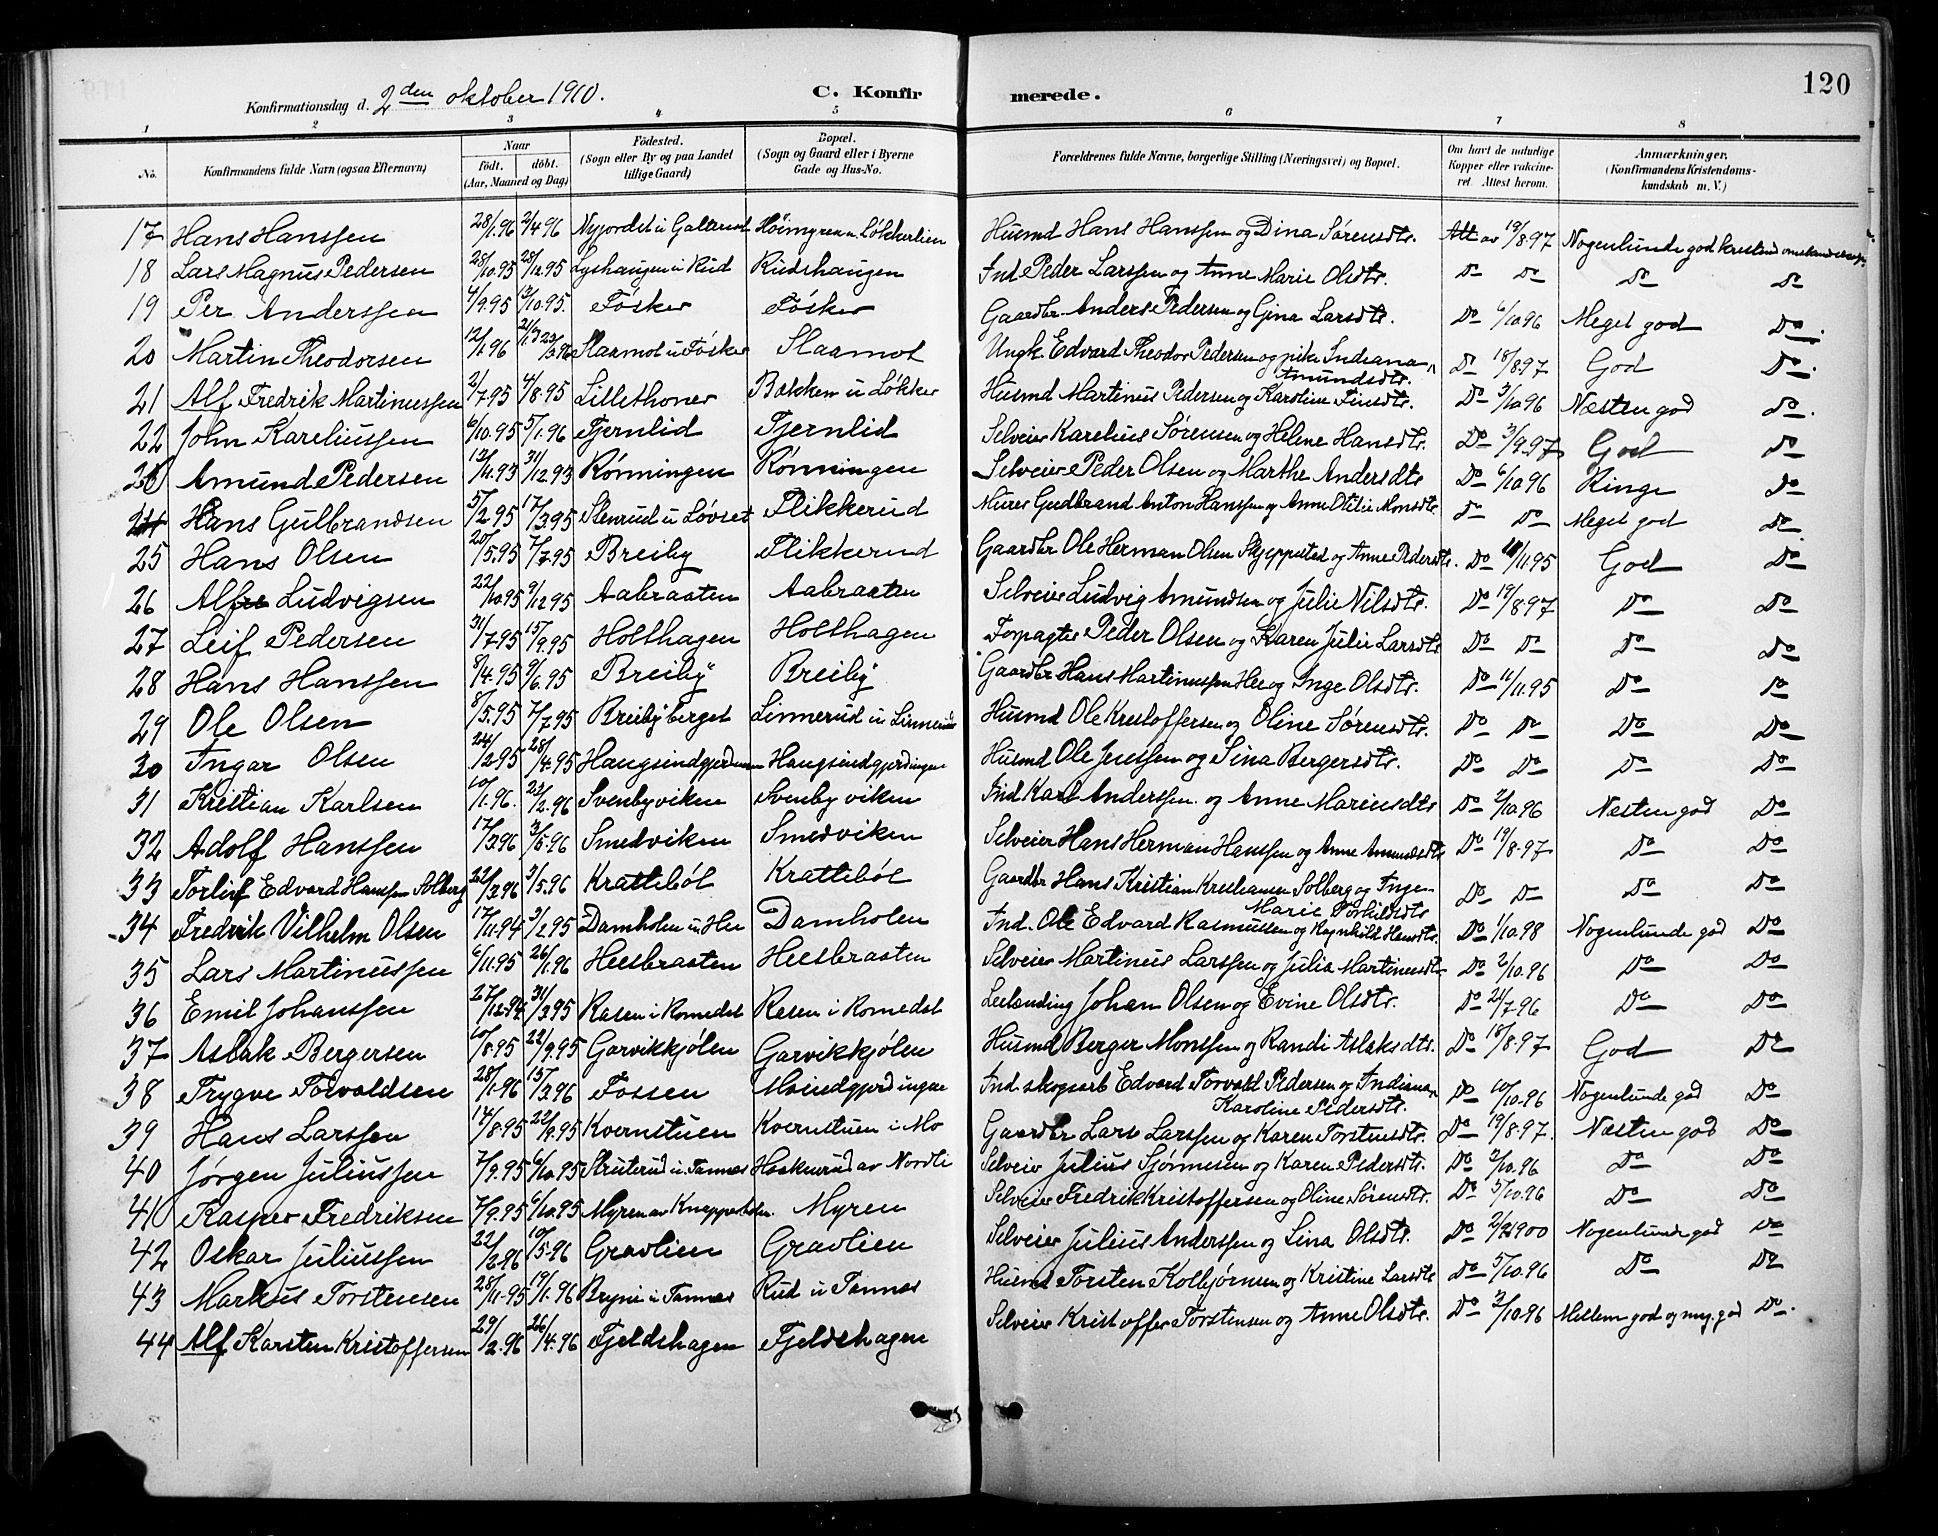 120
Konfirmationsdag d. 2den oktober 1910. C. Konfirmerede.
1 2 3 4 5 6 7 8
No. Konfirmandens fulde Navn (ogsaa Efternavn) Naar födt. döbt. (Aar, Maaned og Dag) Födested. (Sogn eller By og paa Landet tillige Gaard) Bopæl. (Sogn og Gaard eller i Byerne Gade og Hus-No. Forældrenes fulde Navne, borgerlige Stilling (Næringsvei) og Bopæl. Om havt de naturlige Kopper eller vakcineret. Attest herom. Anmærkninger. (Konfirmandens Kristendomskundskab m. V.)
17 Hans Hanssen 28/1.96 2/4 96 Nyjordet u Høimyren u Løkkerlien Husmd Hans Hanssen og Dina Sørensdtr. Att av 19/8.97 Nogenlunde god
18 Lars Magnus Pedersen 28/10.95 28/12.95 Lyshaugen u Rud Rudshaugen Ind Peder Larssen og Anne Marie Olsdtr. Do Do Do Do
19 Per Anderssen 4/9.95 13/10.95. Fósker Fósker Gaardbr Anders Pedersen og Gina Larsdtr. Do 6/10 96 Meget god Do.
20 Martin Theodorsen 12/1.96 Slaamot u Fósker Slaamot Ungk. Edvard Theodor Pedersen og pike Indiana Amundsdtr. Do 18/8.97 God Do.
21 Alf Fredrik Martinussen 2/7.95 4/8.95 Lillethoner Bakken u Løkker Husmd Martinus Pedersen og Karoline Do 3/10.96 Næsten god Do.
22 John Kareliussen 6/10.95 5/1.96 Tjernlid Tjernlid Selveier Karelius Sørensen og Helene Hansdtr. Do 3/9.97 God Do
23 Amund Pedersen 12/11.93 31/12.93 Rónningen Rónningen Selveier Peder Olsen og Marthe Andersdtr Do 6/10.96 Ringe Do
24 Hans Gulbrandsen 5/2.95 17/3.95 Stenrud u Løvset Flikkerud Murer Gudbrand Anton Hanssen og Anne Otilie Monsdtr. Do Do Meget god Do
25 Hans Olsen 20/5.95 7/7.95 Breiby Flikkerud Gaardbr Ole Herman Olsen Skjeppested og Anne Pedersdtr. Do 11/11.95 God Do
26 Alf Ludvigsen 22/10.95 9/12.95 Aabraaten Aabraaten Selveier Ludvig Amundsen og Julie Nilsdtr. Do 19/8.97 Do Do
27 Leif Pedersen 31/7.95 15/9.95 Holthagen Holthagen Forpagter Peder Olsen og Karen Julie Larsdtr Do Do Do Do
28 Hans Hanssen 8/4.95 9/6.95 Breiby Breiby Gaardbr Hans Martinussen Hee og Inge Olsdtr. Do 11/11.95 Do Do
29 Ole Olsen 8/5.95 7/7.95 Breibyberget Linnerud u Linnerud Husmd Ole Kristoffersen og Oline Sørensdtr. Do Do Do Do
30 Ingar Olsen 24/2.95 28/4.95 Haugseindgjerdingen Haugseindgjerdingen Husmd Ole Jenssen og Sina Bergersdtr. Do Do Do Do
31 Kristian Karlsen 10/1.96. 23/2.96 Svenbyviken Svenbyviken Ind Karl Anderssen. og Anne Mariusdtr Do 2/10.96 Næsten god Do
32 Adolf Hanssen 17/3.96 3/5.96 Smedviken Smedviken Selveier Hans Herman Hanssen og Anne Amundsdtr Do 19/8.97 Do Do
33 Torlief Edvard Hanssen Solberg 22/3.96 3/5.96 Krattebòl Krattebòl Gaardbr Hans Kristian Kristiansen Solberg og Inge Marie Torkildsdtr Do Do Do Do
34 Fredrik Vilhelm Olsen 17/11.94 3/2.95 Damholen u Hee Damholen Ind. Ole Edvard Rasmussen og Ragnhild Hansdtr. Do 1/10.98 Nogenlunde god Do
35 Lars Martinussen 6/11.95 26/1.96 Heesbraaten Heesbraaten Selveier Martinus Larssen og Julia Martinusdtr Do 2/10.96 Do Do
36 Emil Johanssen 27/12.94 31/3.95 Rasen i Romedal Rasen i Romedal Leilending Johan Olsen og Evine Olsdtr. Do 21/7.96 Do Do
37 Aslak Bergersen 10/8.95 22/9.95 Garvikkjólen Garvikkjólen Husmd Berger Monssen og Randi Aslaksdtr. Do 18/8.97 God Do
38 Trygve Torvaldsen 28/1.96 15/3.96 Fossen Moindgjerdingen Ind. skogsarb Edvard Torvald Pedersen og Indiana Karoline Pedersdtr. Do 10/10.96 Nogenlunde god Do
39 Hans Larssen 14/8.95 22/9.95 Kvernstuen Kvernstuen i Mo Gaardbr Lars Larssen og Karen Torstensdtr. Do 19/8.97. Næsten god Do
40 Jørgen Juliussen 7/9.95 6/10.95 Struterud u. Tannæs Haakenrud av Nordli Selveier Julius Sjørnesen og Karen Pedersdtr. Do 2/10.96 Do Do
41 Kasper Fredriksen 7/9.95 6/10.95 Myren av Myren Selveier Fredrik Kristoffersen og Oline Sørensdtr. Do 5/10.96 Do Do
42 Oskar Juliussen 22/2.96 10/5.96 Gravlien Gravlien Selveier Julius Anderssen og Lina Olsdtr. Do Nogenlunde god Do
43 Markus Torstensen 28/11.95 19/1.96 Bryni u Tannæs Rud u Tannæs Husmd Torsten Kolbjørnsen og Kristine Larsdtr Do 5/10.96 Do Do
44 Alf Karsten Kristoffersen 29/2.96 26/4.96 Fjeldshagen Fjeldshagen Selveier Kristoffer Torstensen og Anne Olsdtr. Do 3/10.96 Mellem god og meg. god Do.